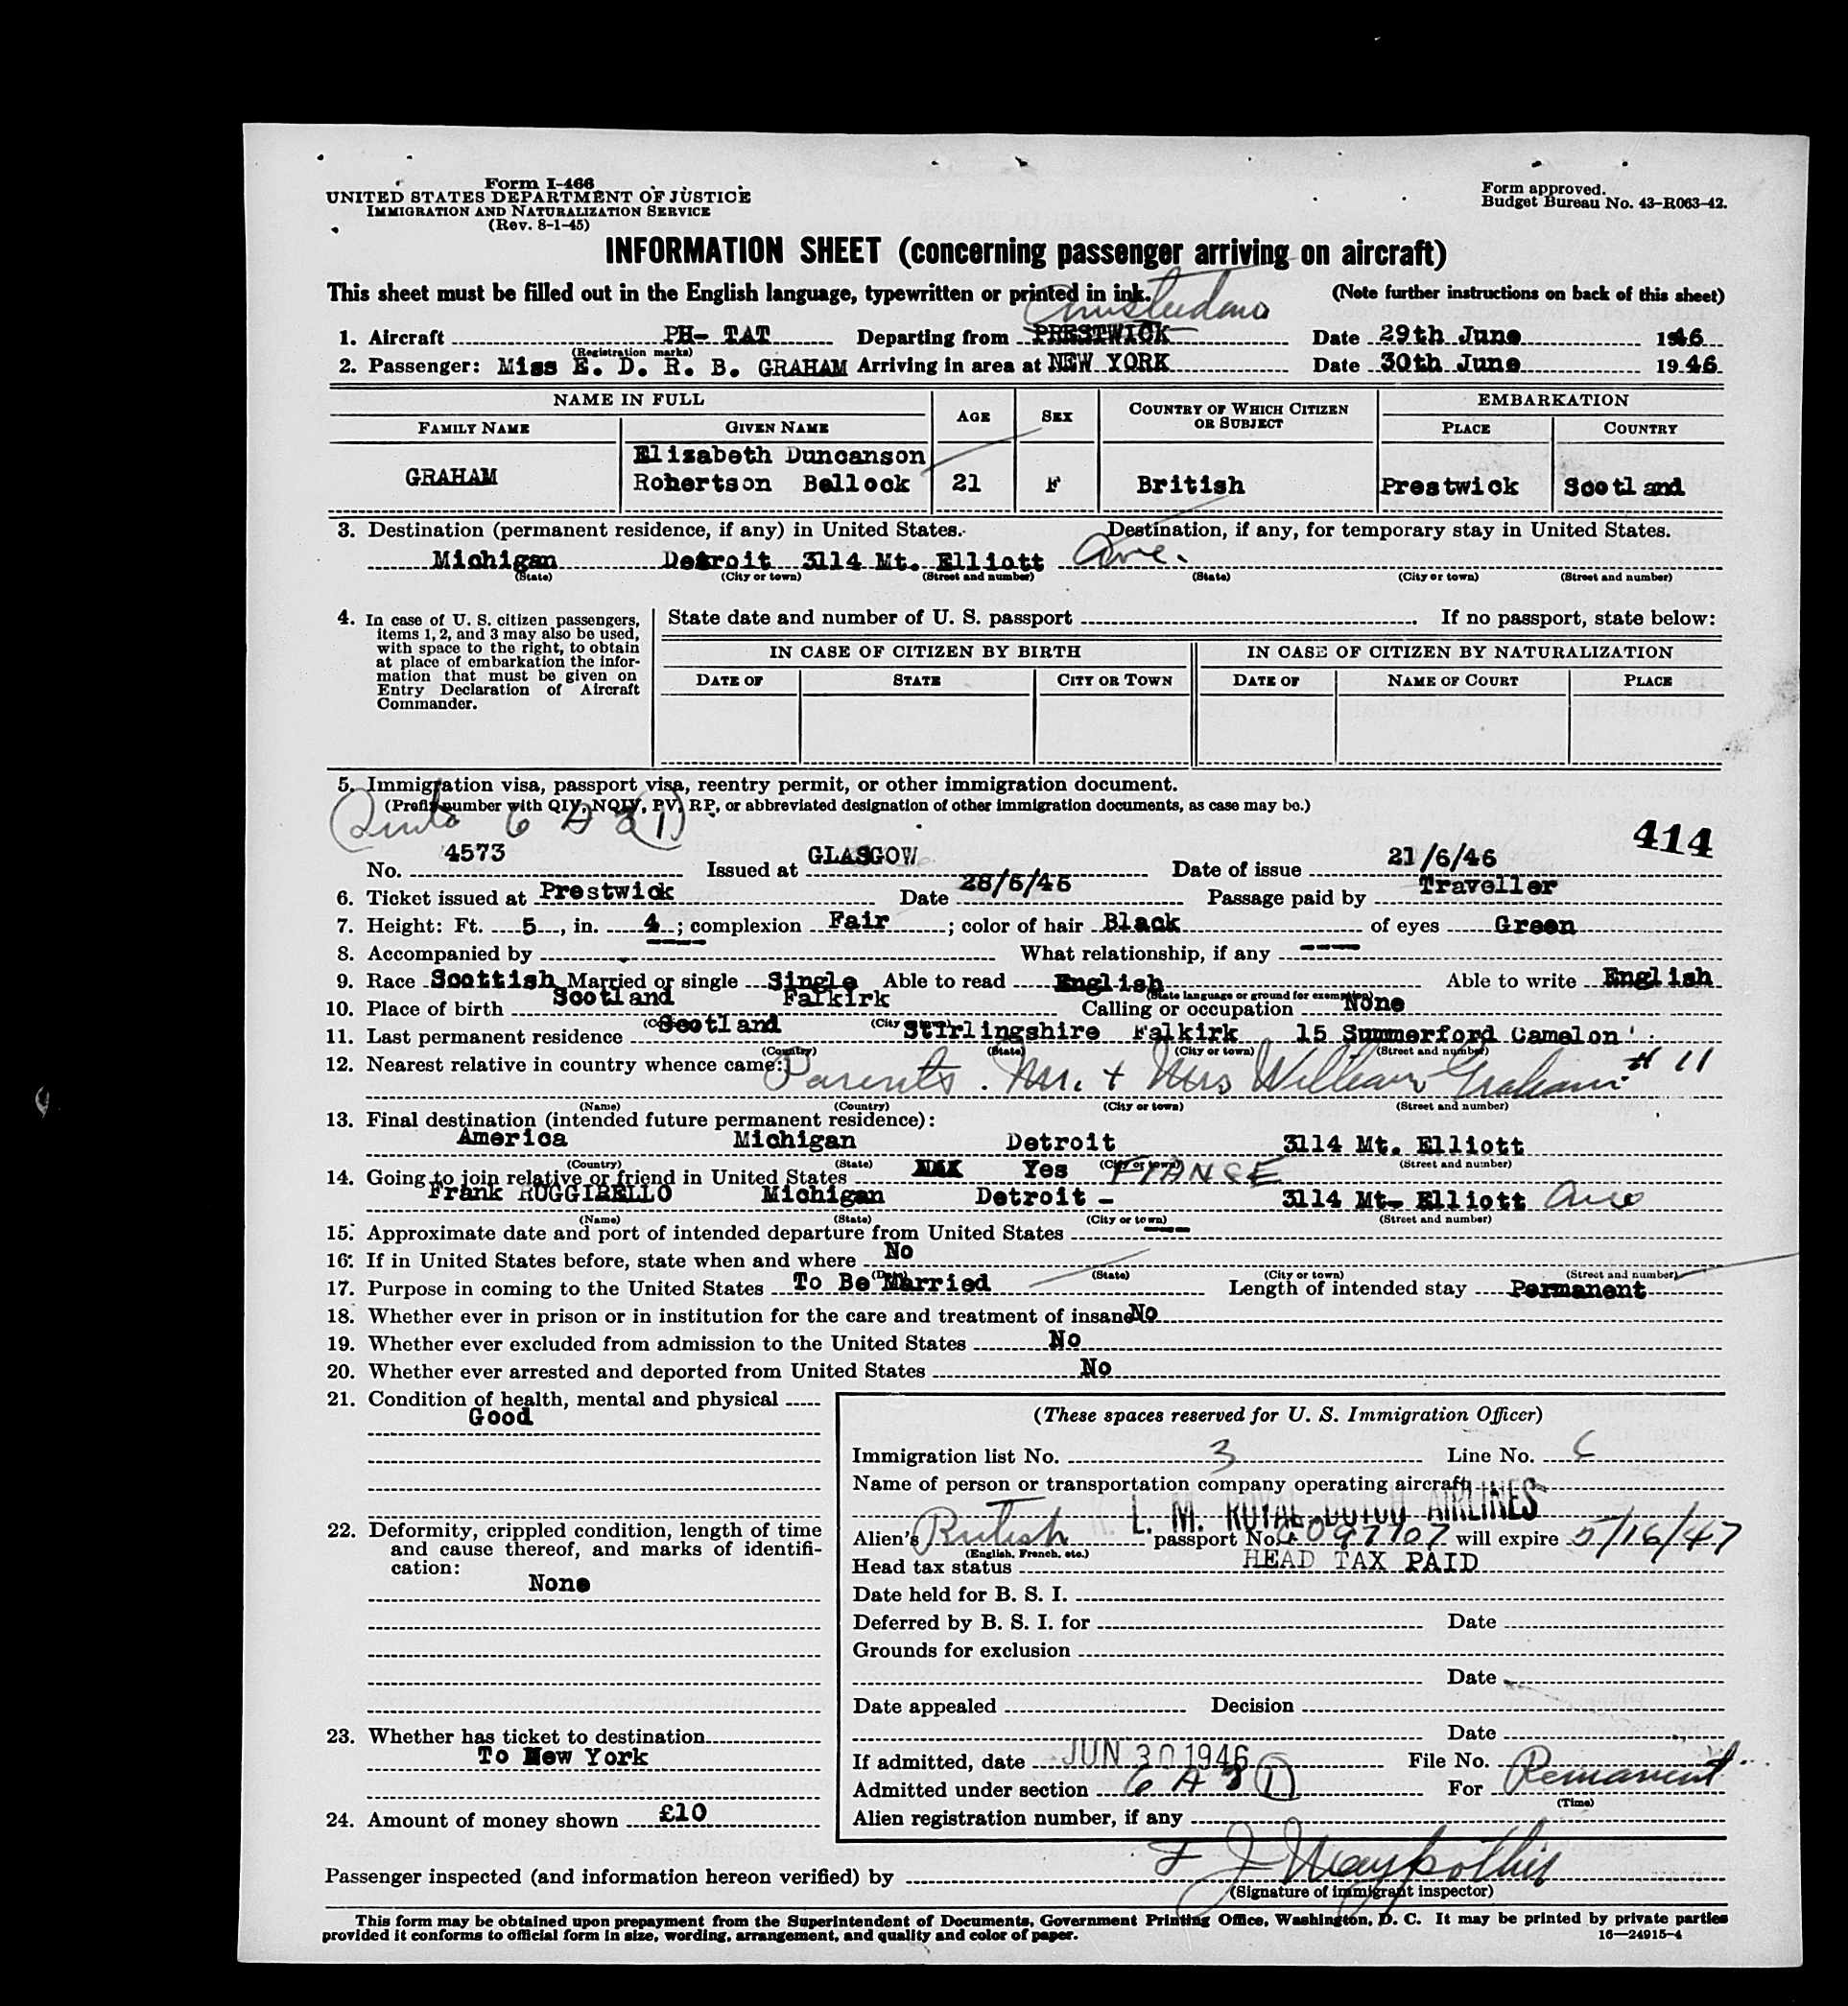 Form I-466
UNITED STATES DEPARTMENT OF JUSTICE
IMMIGRATION AND NATURALIZATION SERVICE
(Rev. 8-1-45)
Form approved.
Budget Bureau No. 43-R063-42.
INFORMATION SHEET (concerning passenger arriving on aircraft)
This sheet must be filled out in the English language, typewritten or printed in ink. (Note further instructions on back of this sheet)
Amsterdam
1. Aircraft PH- TAT Departing from PRESTWICK Date 29th June 1946
(Registration marks)
2. Passenger: Miss E. D. R. B. GRAHAM Arriving in area at NEW YORK Date 30th June 1946
NAME IN FULL AGE SEX COUNTRY OF WHICH CITIZEN OR SUBJECT EMBARKATION
FAMILY NAME GIVEN NAME PLACE COUNTRY
Elizabeth Duncanson
GRAHAM Robertson Bellock 21 F British Prestwick Scotland
3. Destination (permanent residence, if any) in United States. Destination, if any, for temporary stay in United States.
Michigan Detroit 3114 Mt. Elliott Ave.
(State) (City or town) (Street and number) (State) (City or town) (Street and number)
4. In case of U. S. citizen passengers, items 1, 2, and 3 may also be used, with space to the right, to obtain at place of embarkation the information that must be given on Entry Declaration of Aircraft Commander.
State date and number of U. S. passport If no passport, state below:
IN CASE OF CITIZEN BY BIRTH IN CASE OF CITIZEN BY NATURALIZATION
DATE OF STATE CITY OR TOWN DATE OF NAME OF COURT PLACE
5. Immigration visa, passport visa, reentry permit, or other immigration document.
(Prefix number with QIV, NQIV, PV, RP, or abbreviated designation of other immigration documents, as case may be.)
414
No. 4573 Issued at GLASGOW Date of issue 21/6/46
6. Ticket issued at Prestwick Date 28/6/46 Passage paid by Traveller
7. Height: Ft. 5, in. 4; complexion Fair; color of hair Black of eyes Green
8. Accompanied by ---- What relationship, if any ----
9. Race Scottish Married or single Single Able to read English Able to write English
(State language or ground for exemption)
10. Place of birth Scotland Falkirk Calling or occupation None
11. Last permanent residence Scotland Stirlingshire Falkirk 15 Summerford Camelon
(Country) (State) (City or town) (Street and number)
12. Nearest relative in country whence came: Parents. Mr. + Mrs William Graham # 11
(Name) (Country) (City or town) (Street and number)
13. Final destination (intended future permanent residence):
America Michigan Detroit 3114 Mt. Elliott
(Country) (State) (City or town) (Street and number)
14. Going to join relative or friend in United States Yes FIANSE
Frank RUGGIRELLO Michigan Detroit - 3114 Mt- Elliott Ave
(Name) (State) (City or town) (Street and number)
15. Approximate date and port of intended departure from United States ----
16. If in United States before, state when and where No
(Date) (State) (City or town) (Street and number)
17. Purpose in coming to the United States To Be Married Length of intended stay Permanent
18. Whether ever in prison or in institution for the care and treatment of insane No
19. Whether ever excluded from admission to the United States No
20. Whether ever arrested and deported from United States No
21. Condition of health, mental and physical
Good
22. Deformity, crippled condition, length of time and cause thereof, and marks of identification:
None
23. Whether has ticket to destination
To New York
24. Amount of money shown £10
(These spaces reserved for U. S. Immigration Officer)
Immigration list No. 3 Line No. 6
Name of person or transportation company operating aircraft
K. L. M. ROYAL DUTCH AIRLINES
Alien's British passport No. C097707 will expire 5/16/47
(English, French, etc.)
Head tax status HEAD TAX PAID
Date held for B. S. I.
Deferred by B. S. I. for Date
Grounds for exclusion
Date
Date appealed Decision
Date
If admitted, date JUN 30 1946 File No.
Admitted under section 6 A 3 (1) For Permanent
(Time)
Alien registration number, if any
Passenger inspected (and information hereon verified) by
(Signature of immigrant inspector)
This form may be obtained upon prepayment from the Superintendent of Documents, Government Printing Office, Washington, D. C. It may be printed by private parties
provided it conforms to official form in size, wording, arrangement, and quality and color of paper. 16—24915-4